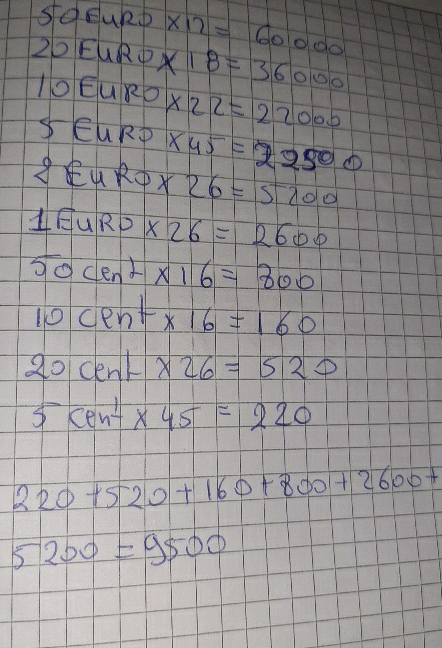 50 EURO x12= 60000
20 EURO x 18= 36000
10 EURO x22= 22000
5 EURO x45= 22500
2 EURO x 26= 5200
1 EURO x26= 2600
50 cent x 16= 800
10 cent x 16 = 160
20 cent x26= 520
5 cent x 45 = 220
220+520+160+800+2600+
5200 = 9500